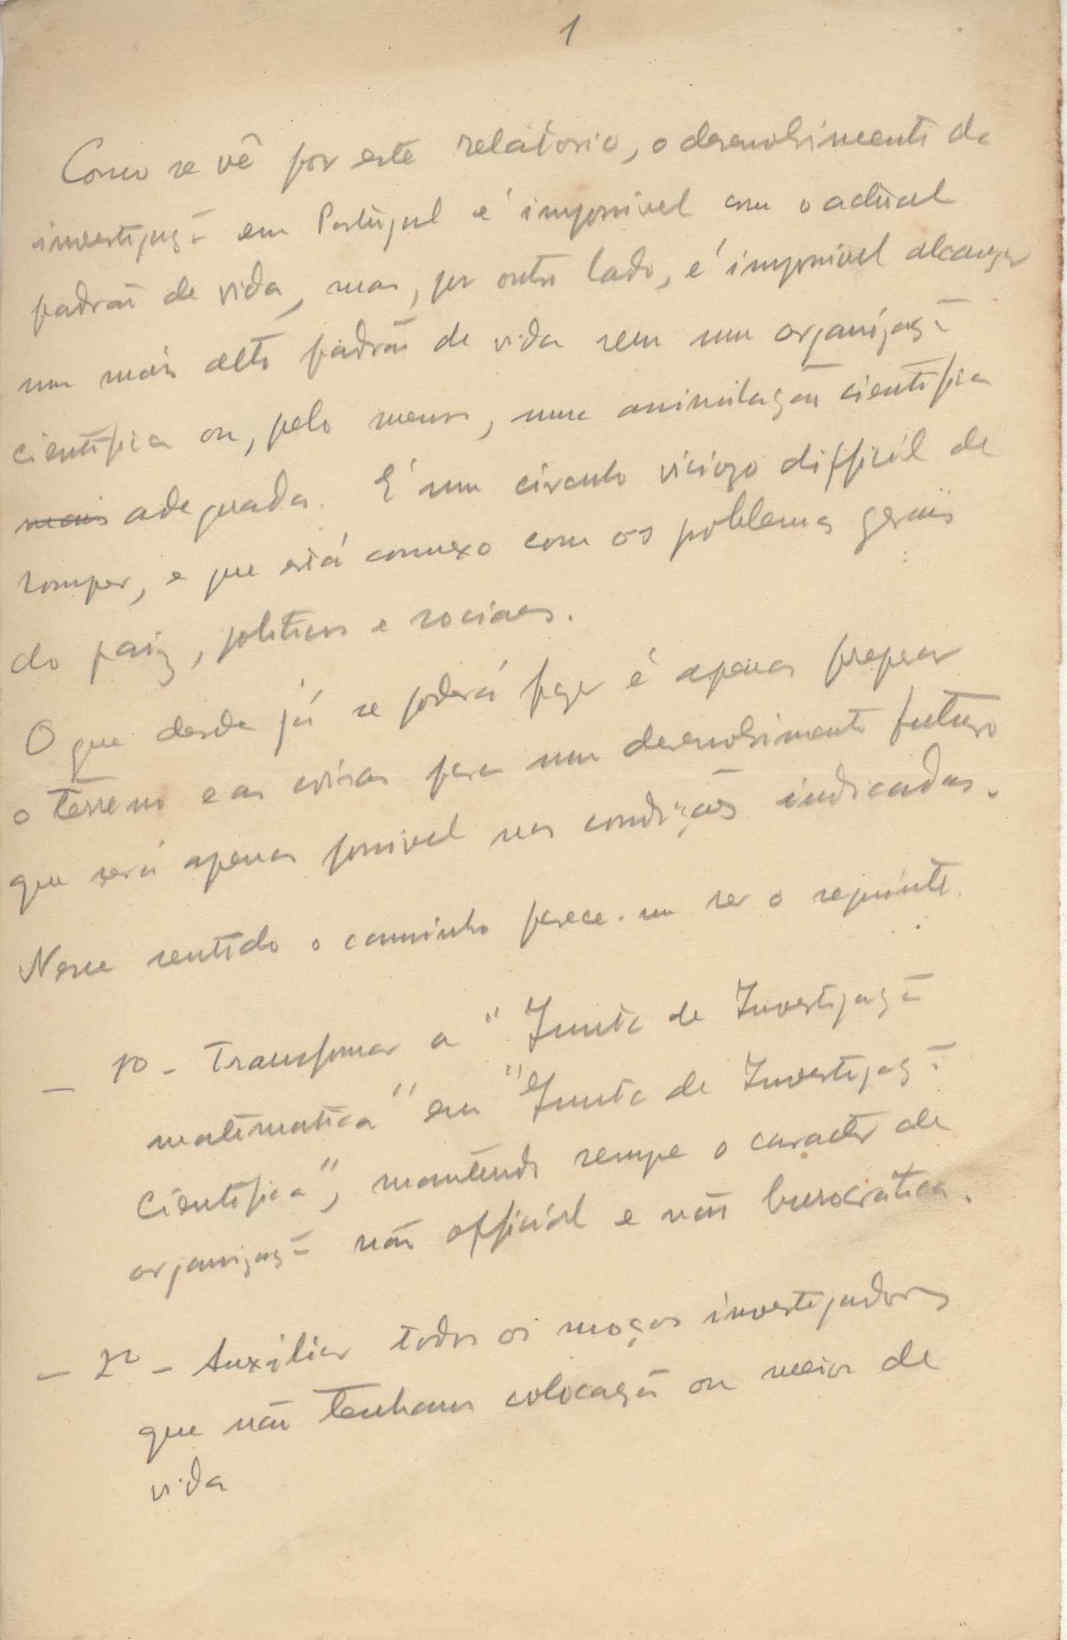 1
Como se vê por este relatório, o desenvolvimento da
investigação em Portugal é impossivel com o actual
padrão de vida, mas, por outro lado, é impossivel alcançar
um mais alto padrão de vida sem uma organização
cientifica ou, pelo menos, uma assimilação cientifica
mais adequada. É um circulo viciozo difficil de
romper, e que está connexo com os problemas geraes
do paiz, politicos e sociaes.
O que desde já se poderá fazer é apenas preparar
o terreno e as coisas para um desenvolvimento futuro
que será apenas possivel nas condições indicadas.
Nesse sentido o caminho parece-me ser o seguinte.
- 1º - Transformar a "Junta de Investigação
matematica" em "Junta de Investigação
Cientifica", mantendo sempre o caracter de
organização não official e não burocratica.
- 2º - Auxiliar todos os moços investigadores
que não tenham colocação ou meios de
vida